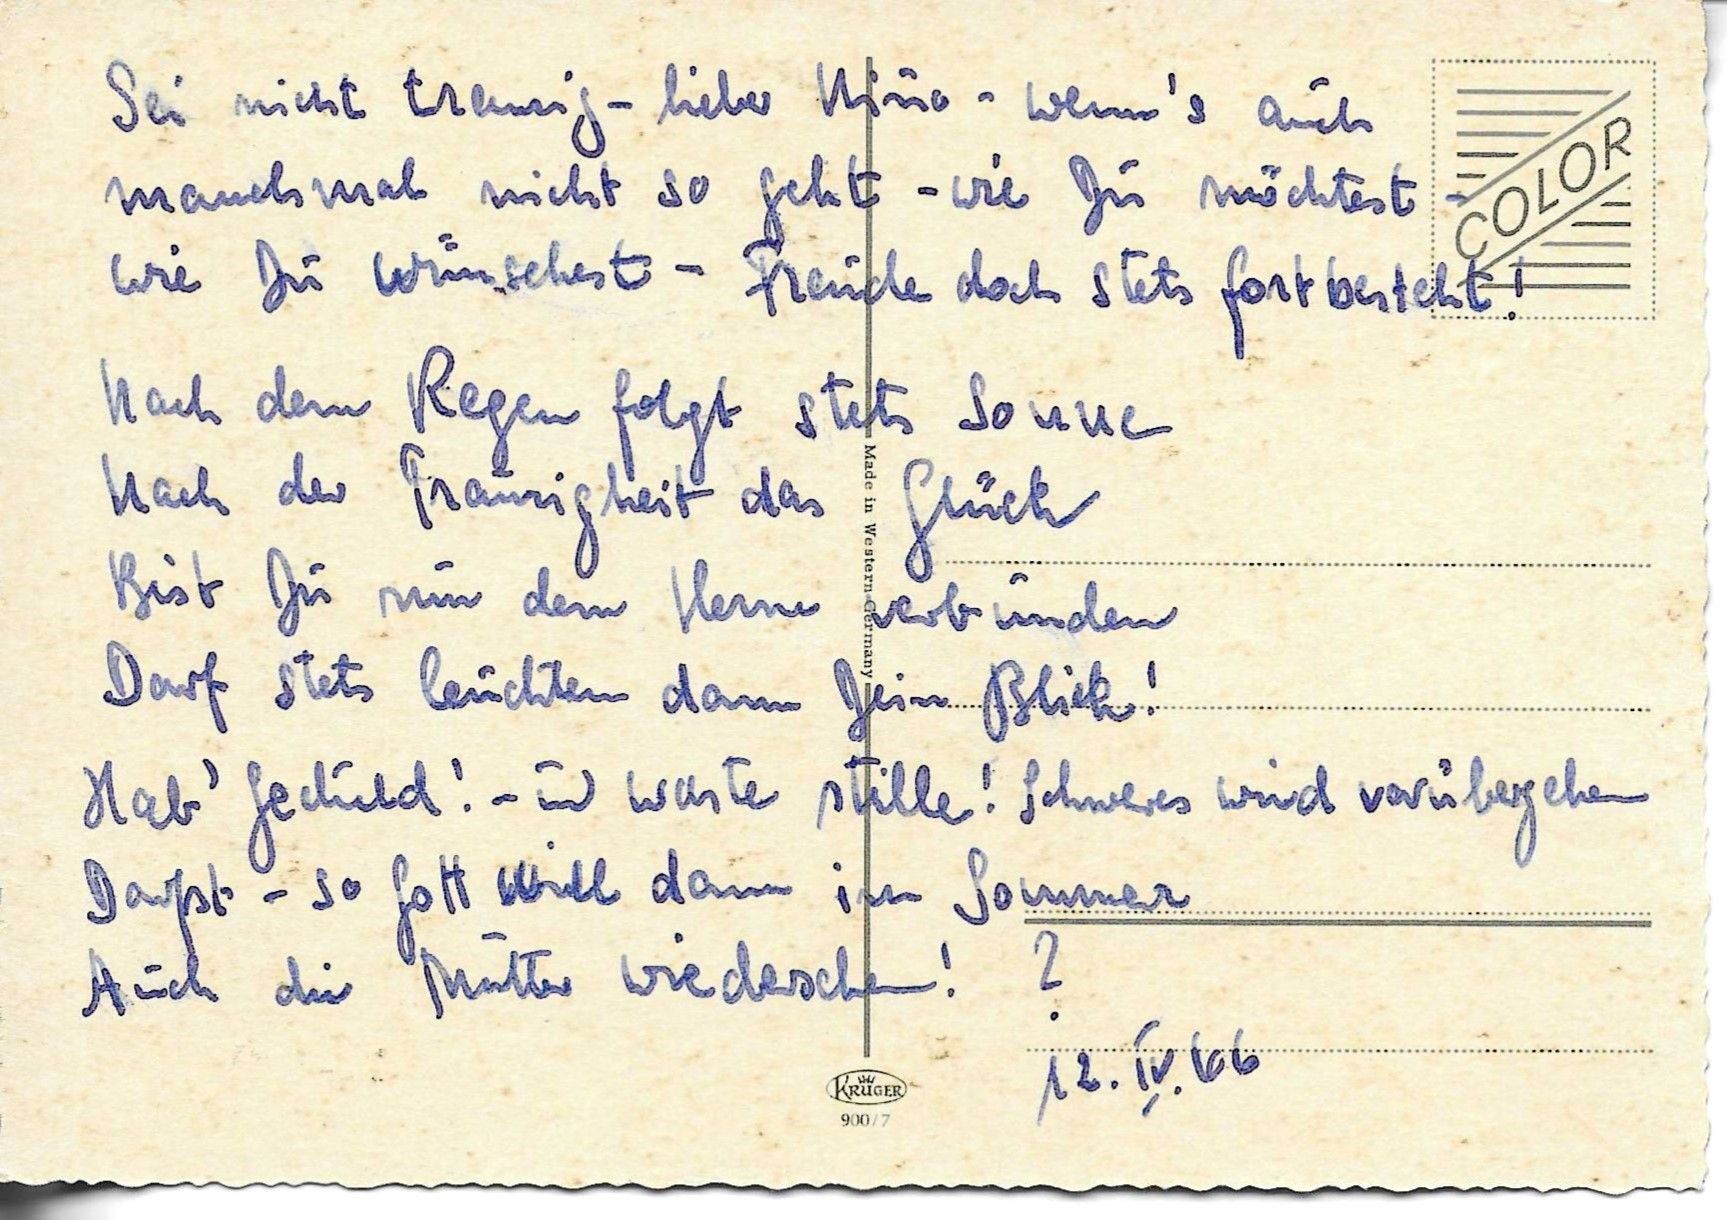 Sei nicht traurig - lieber Nino - wenn's auch
manchmal nicht so geht - wie Du möchtest -
wie Du wünschest - Freude doch stets fortbesteht!
Nach dem Regen folgt stets Sonne
Nach der Traurigkeit das Glück
Bist Du nur dem Herrn verbunden
Darf stets leuchten dann Dein Blick!
Hab' Geduld! - u warte stille! Schweres wird vorübergehen
Darfst - so Gott will dann im Sommer
Auch die Mutter wiedersehen! ?
12. IV. 66
COLOR
Made in Western Germany
KRÜGER
900/7